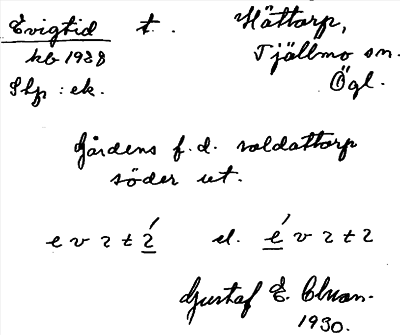 Evigtid t. Hättorp,
kb 1938 Tjällmo sn.
Skp : ek. Ögl.
Gårdens f. d. soldattorp
söder ut.
e v ɿ t ɿ́ el. é v ɿ t ɿ
Gustaf E.
1930.